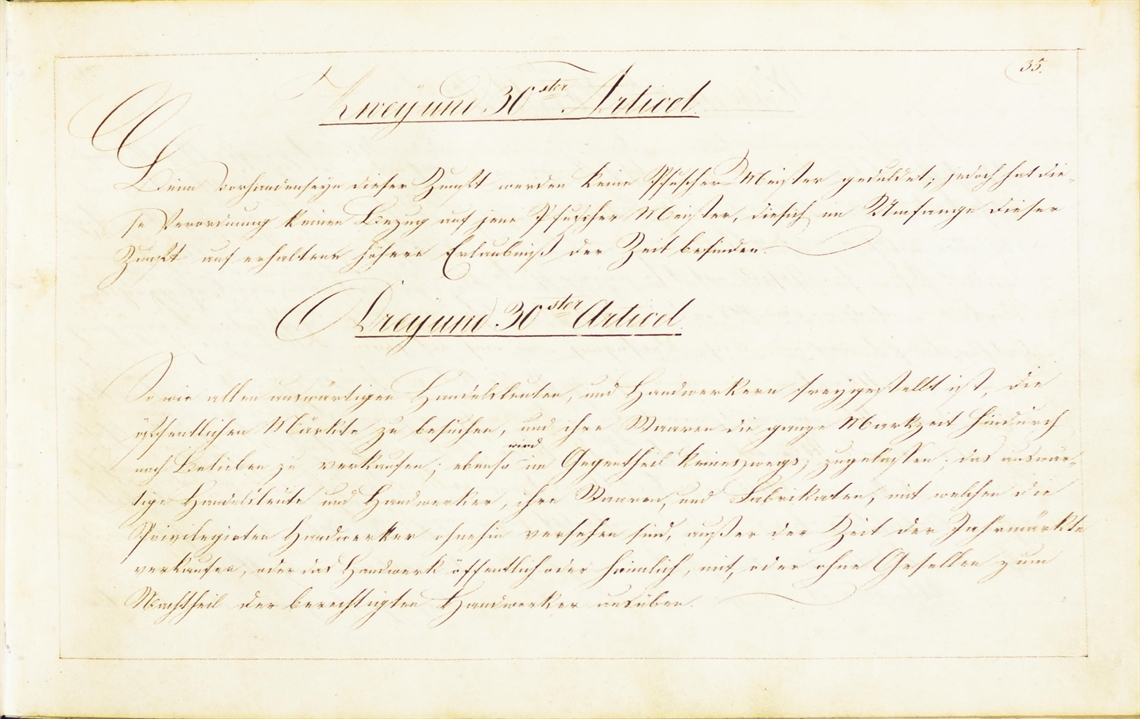 35.
Zwey und 30ster Articel
Beim Vorhandenseyn dieser Zunft werden keine Pfuscher Meister geduldet; jedoch hat die-
se Verordnung keinen Bezug auf jene Pfuscher Meister, die sich im Umfange dieser
Zunft auf erhaltene höhere Erlaubniß der Zeit befinden.
Drey und 30ster Articel
So wie allen auswärtigen Handelsleuten, und Handwerkern freygestellt ist, die
öffentlichen Märkte zu besuchen, und ihre Waaren die ganze Markzeit hindurch
nach Belieben zu verkaufen; ebenso wird im Gegentheil keineswegs zugelassen: das auswär-
tige Handelsleute und Handwerker, ihre Waaren, und Fabrikaten, mit welchen die
Privilegirten Handwerker ohnehin versehen sind, außer der Zeit der Jahrmärkte
verkaufen, oder das Handwerk öffentlich oder heimlich, mit, oder ohne Gesellen zum
Nachtheil der berechtigten Handwerker ausüben.